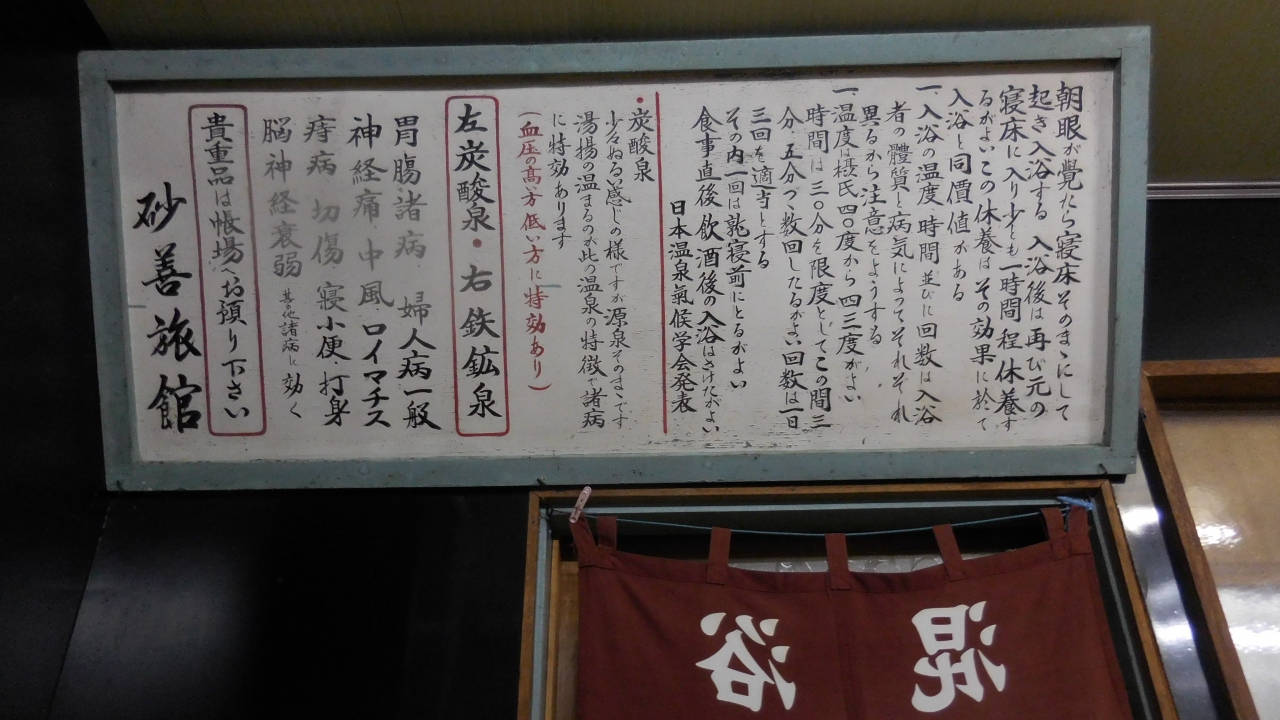 朝眼が覺たら寝床そのまゝにして
起き入浴する 入浴後は再び元の
寝床に入り少くも一時間程休養す
るがよいこの休養はその効果に於て
入浴と同價値がある
一入浴の温度 時間 並びに回数は入浴
者の體質と病気によってそれぞれ
異るから注意をようする
一温度は摂氏四〇度から四三度がよい
時間は三〇分を限度としてこの間三
分 五分づゝ数回したるがよい回数は一日
三回を適当とする
その内一回は就寝前にとるがよい
食事直後 飲酒後の入浴はさけたがよい
日本温泉氣候学会発表
・炭酸泉
少々ぬるい感じの様ですが源泉そのまゝです
湯揚の温まるのが此の温泉の特徴で諸病
に特効あります
(血圧の高方低い方に特効あり)
左炭酸泉・右鉄鉱泉
胃腸諸病 婦人病一般
神経痛 中風 ロイマチス
痔病 切傷 寝小便 打身
脳神経衰弱 其の他諸病に効く
貴重品は帳場へお預り下さい
砂善旅館
混浴